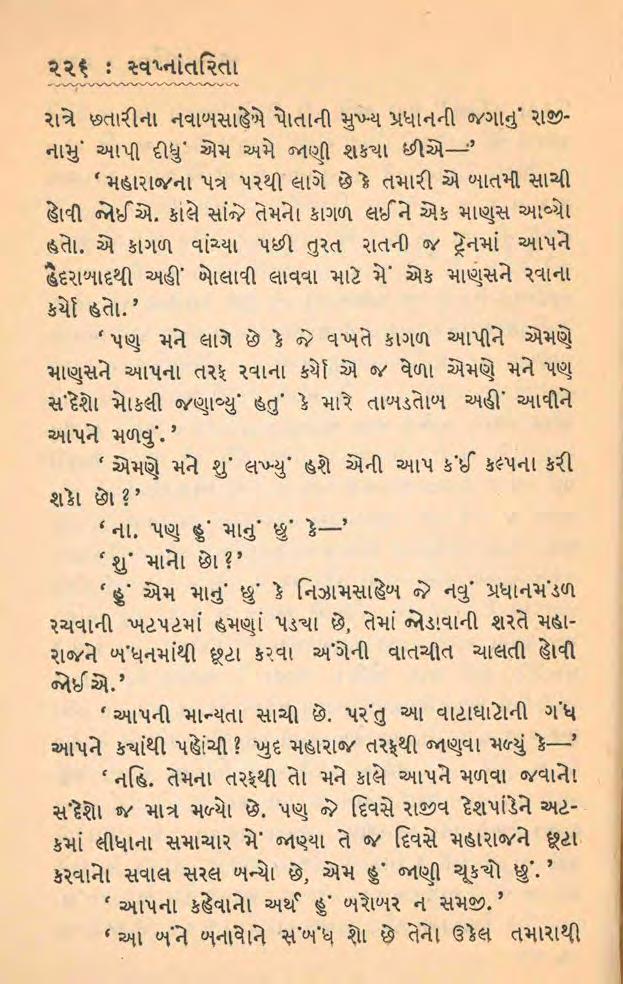 ૨૨૬ : સ્વપ્નાંતરિતા
રાત્રે છતારીના નવાબસાહેબે પોતાની મુખ્ય પ્રધાનની જગાનું રાજી-
નામું આપી દીધું એમ અમે જાણી શક્યા છીએ—’
‘ મહારાજના પત્ર પરથી લાગે છે કે તમારી એ બાતમી સાચી
હોવી જોઈએ. કાલે સાંજે તેમનો કાગળ લઈને એક માણુસ આવ્યો
હતો. એ કાગળ વાંચ્યા પછી તુરત રાતની જ ટ્રેનમાં આપને
હૈદરાબાદથી અહીં બોલાવી લાવવા માટે મેં એક માણુસને રવાના
કર્યો હતો.’
‘ પણ મને લાગે છે કે જે વખતે કાગળ આપીને એમણે
માણુસને આપના તરફ રવાના કર્યો એ જ વેળા એમણે મને પણ
સંદેશો મોકલી જણાવ્યું હતું કે મારે તાબડતોબ અહીં આવીને
આપને મળવું.’
‘ એમણે મને શું લખ્યું હશે એની આપ કંઈ કલ્પના કરી
શકો છો ?’
‘ ના. પણ હું માનું છું કે—’
‘ શું માનો છો ?’
‘ હું એમ માનું છું કે નિઝામસાહેબ જે નવું પ્રધાનમંડળ
રચવાની ખટપટમાં હમણાં પડ્યા છે, તેમાં જોડાવાની શરતે મહા-
રાજને બંધનમાંથી છૂટા કરવા અંગેની વાતચીત ચાલતી હોવી
જોઈએ.’
‘ આપની માન્યતા સાચી છે. પરંતુ આ વાટાઘાટોની ગંધ
આપને ક્યાંથી પહોંચી ? ખુદ મહારાજ તરફથી જાણવા મળ્યું કે—’
‘ નહિ. તેમના તરફથી તો મને કાલે આપને મળવા જવાનો
સંદેશો જ માત્ર મળ્યો છે. પણ જે દિવસે રાજીવ દેશપાંડેને અટ-
કમાં લીધાના સમાચાર મેં જાણ્યા તે જ દિવસે મહારાજને છૂટા
કરવાનો સવાલ સરલ બન્યો છે, એમ હું જાણી ચૂક્યો છું.’
‘ આપના કહેવાનો અર્થ હું બરોબર ન સમજી.’
‘ આ બંને બનાવોને સંબંધ શો છે તેનો ઉકેલ તમારાથી